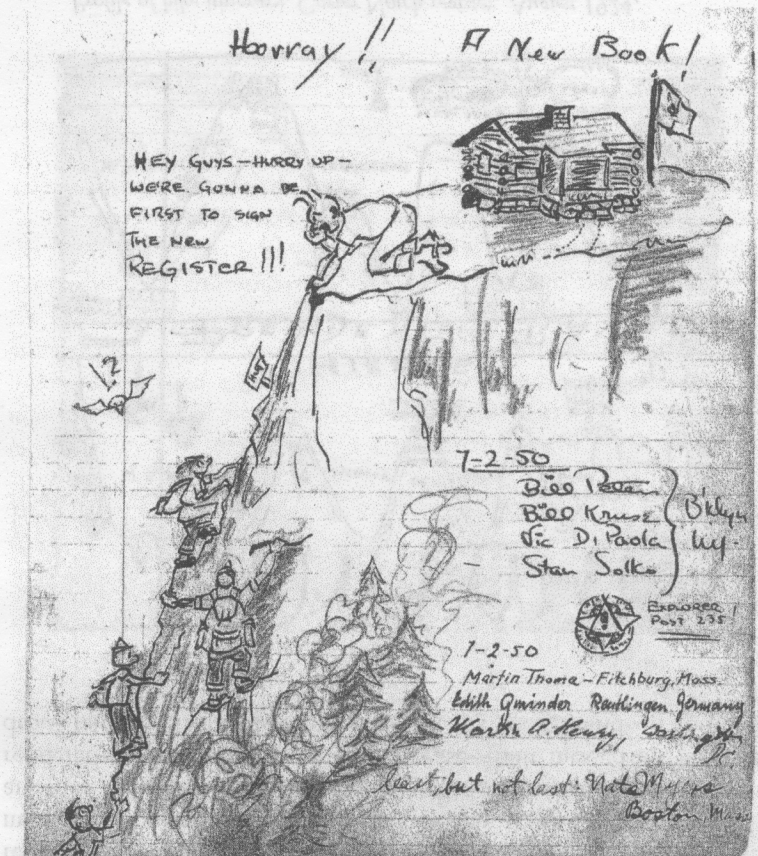 Hooray !! A New Book!
HEY GUYS—HURRY UP—
WE'RE GONNA BE
FIRST TO SIGN
THE NEW
REGISTER !!!
!?
7-2-50
Bill
Bill Kruse
Vic Di Paola
Stan Solko
B'klyn
NY.
EXPLORER !
POST 235
7-2-50
Martin Thoma - Fitchburg, Mass.
Edith Gminder Reutlingen Germany
A. Henry, Washington
DC
least, but not last: Nate Myers
Boston, Mass